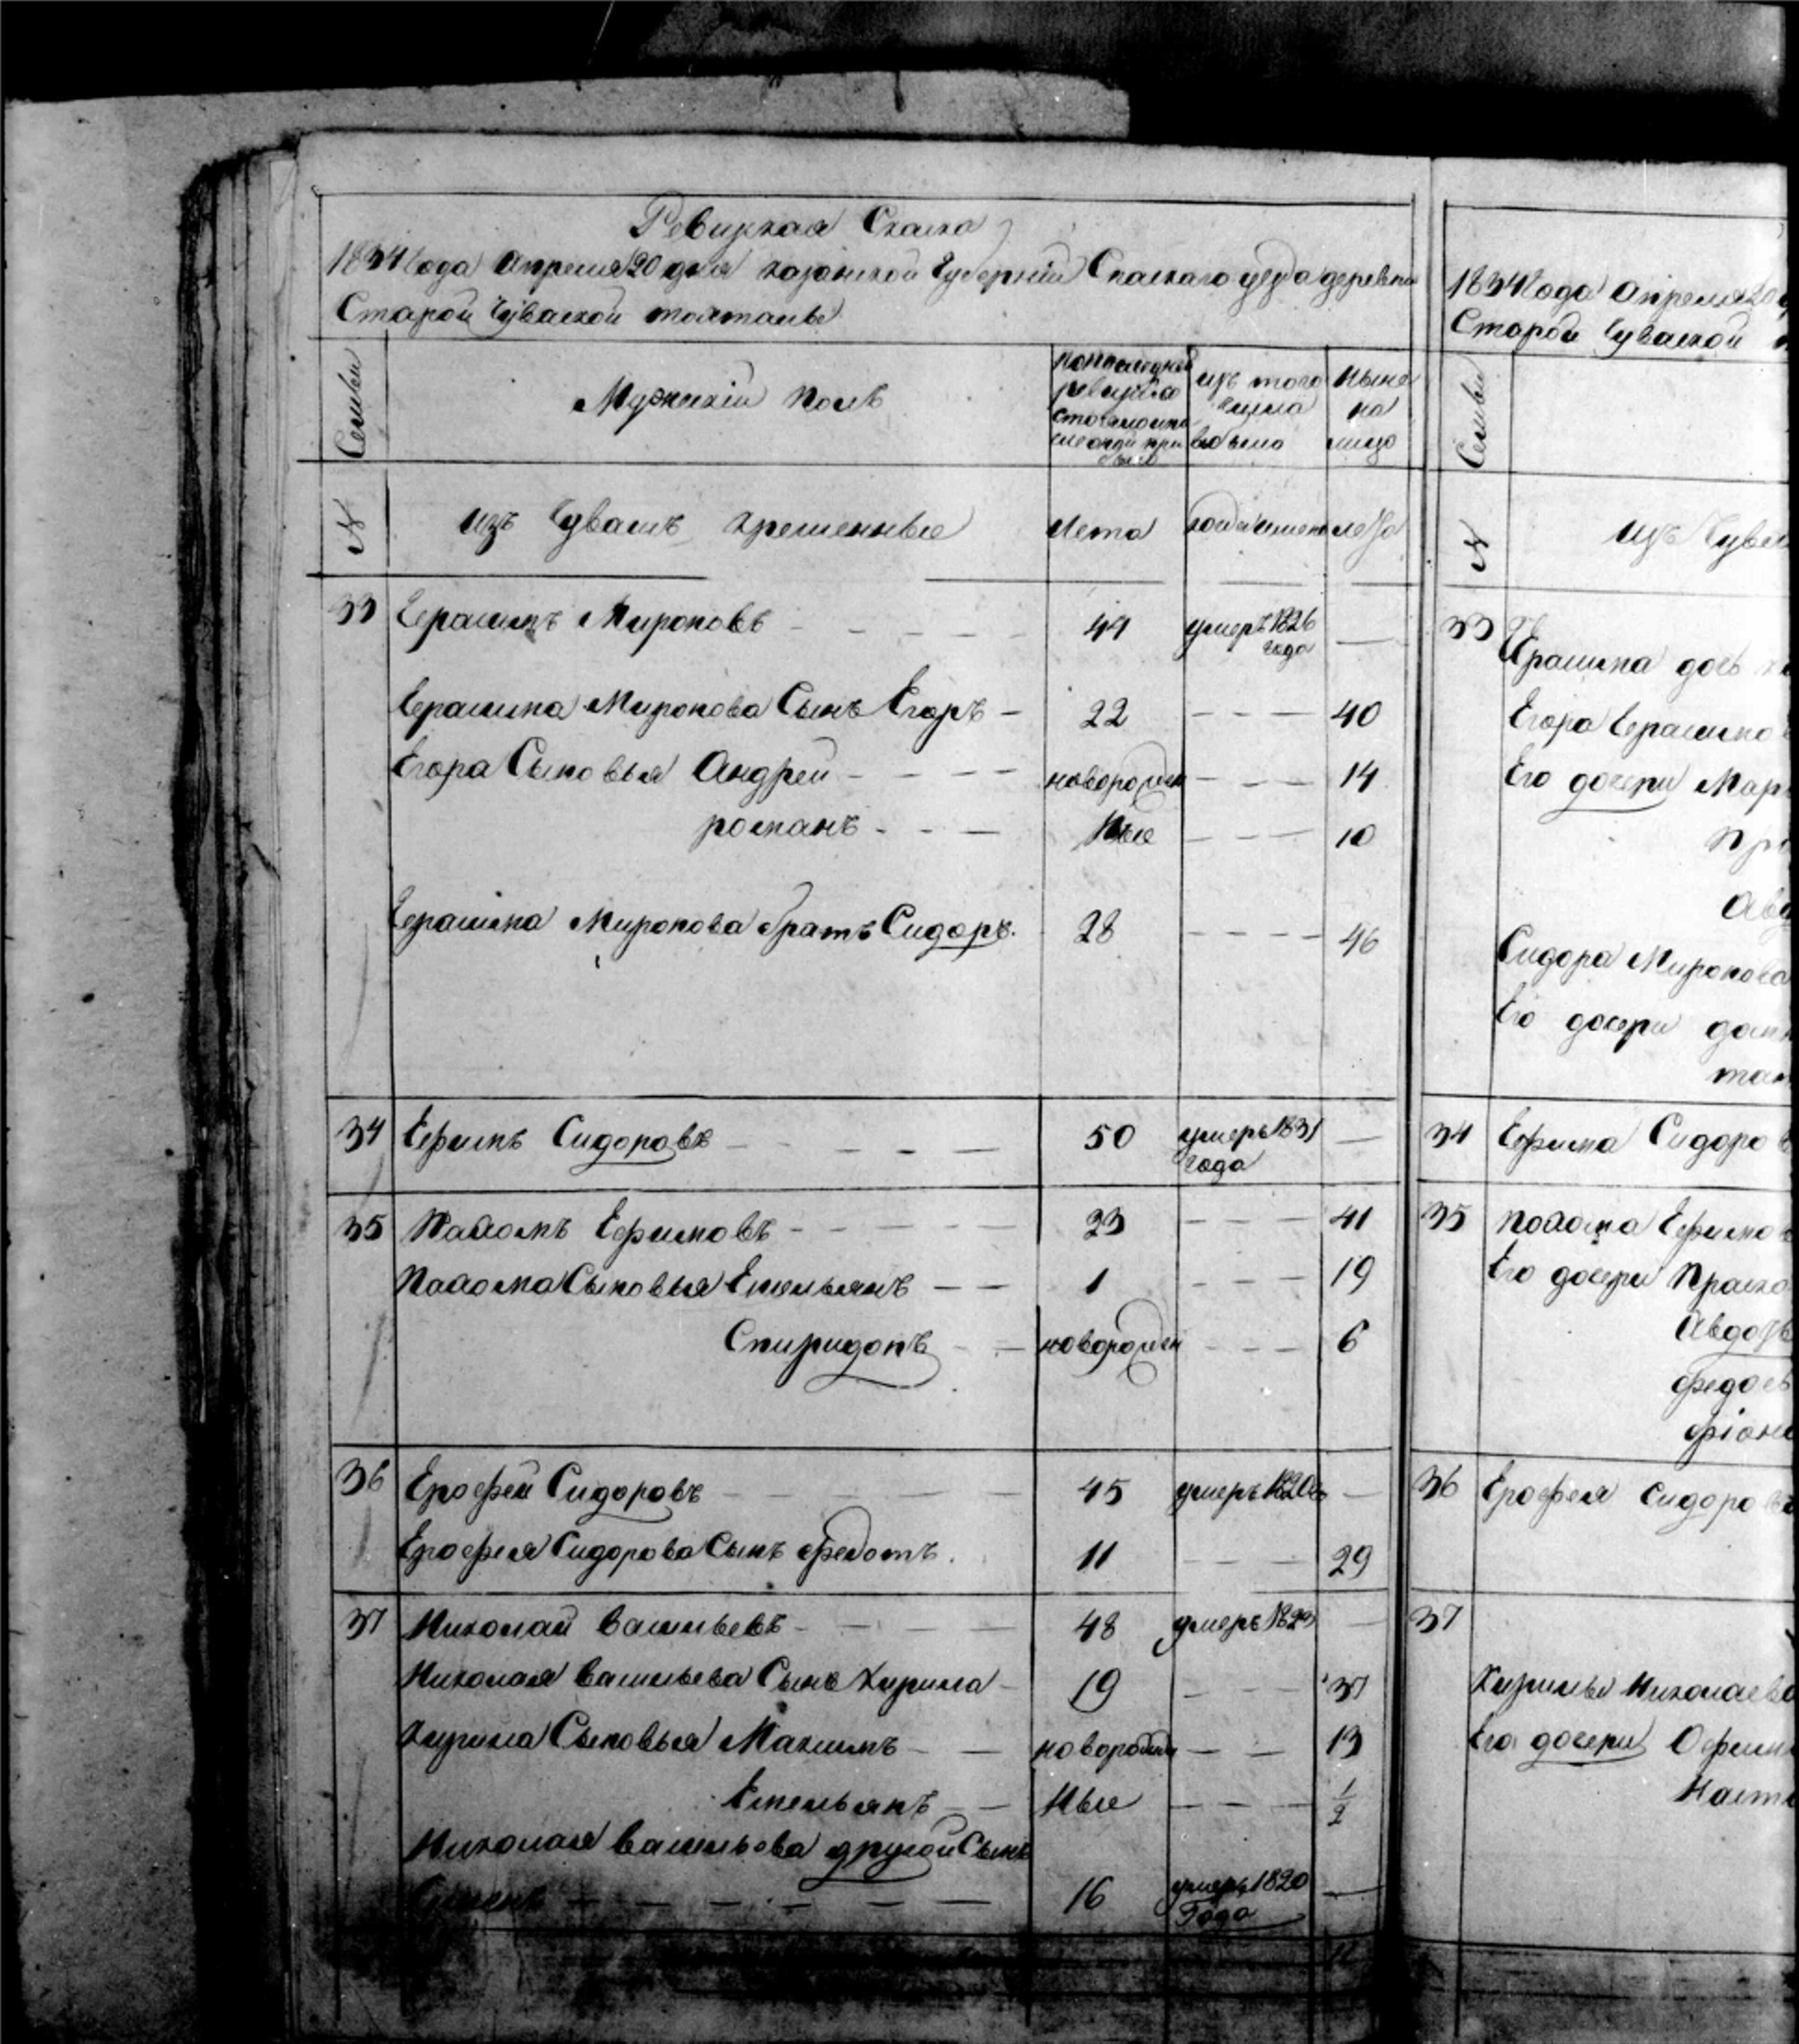 Ревизкая Сказка
1834 года Апреля 20 дня казанской Губернии Спаскаго уезда деревни
Старой Чуваской
Семьи
Мужеский полъ
по последней
ревизiи
состояло и
после оной при
было
изъ того
числа
выбыло
ныне
на
лицо
№
изъ Чувашъ крещенные
лета
когда именно
лета
33
Герасимъ Мироновъ
44
умеръ 1826
года
Герасима Миронова Сынъ Егоръ
22
40
Егора Сыновья Андрей
новорожден
14
романъ
ные
10
Герасима Миронова братъ Сидоръ
28
46
34
Ефимъ Сидоровъ
50
умеръ 1831
года
35
Пахомъ Ефимовъ
23
41
Пахома Сыновья Емельянъ
1
19
Спиридонъ
новорожден
6
36
Ерофей Сидоровъ
45
умеръ 1820
Ерофея Сидорова Сынъ Федотъ
11
29
37
Николай Васильевъ
48
умеръ 1829
Николая Васильева Сынъ Кирила
19
37
Кирила Сыновья Максимъ
новорожден
13
Емельянъ
ные
1/2
Николая Васильева другой Сынъ
Семенъ
16
умеръ 1820
Года
1834 года Апреля 20
Старой Чуваской
Семьи
№
изъ Чува
33
Герасима дочь
Егора Герасимо
Его дочери Мар
Сидора Миронова
Его дочери дом
34
Ефима Сидоров
35
Пахома Ефимов
Его дочери Праско
Авдоть
Федось
36
Ерофея Сидоров
37
Кирилы Николаева
Его дочери Офим
Наста